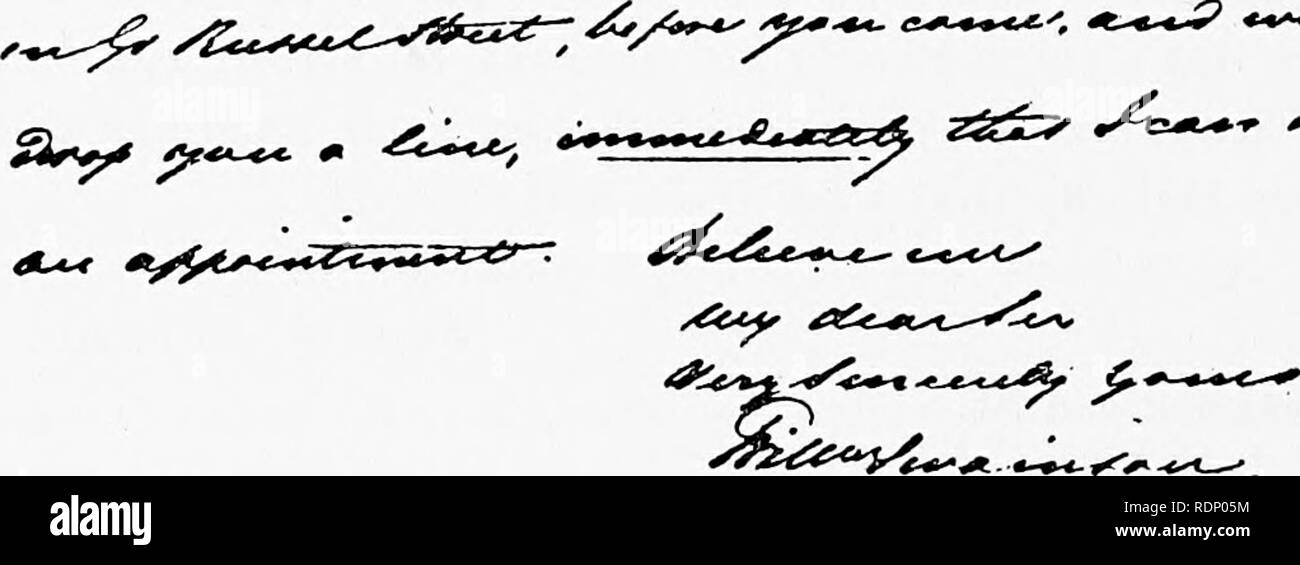 in Gt Russel Street, before you come, and
drop you a line, immediately that I can
an appointment. Believe me
my dear Sir
Very Sincerely yours
Willm Swainson
alamy
Image ID: RDP05M
www.alamy.com